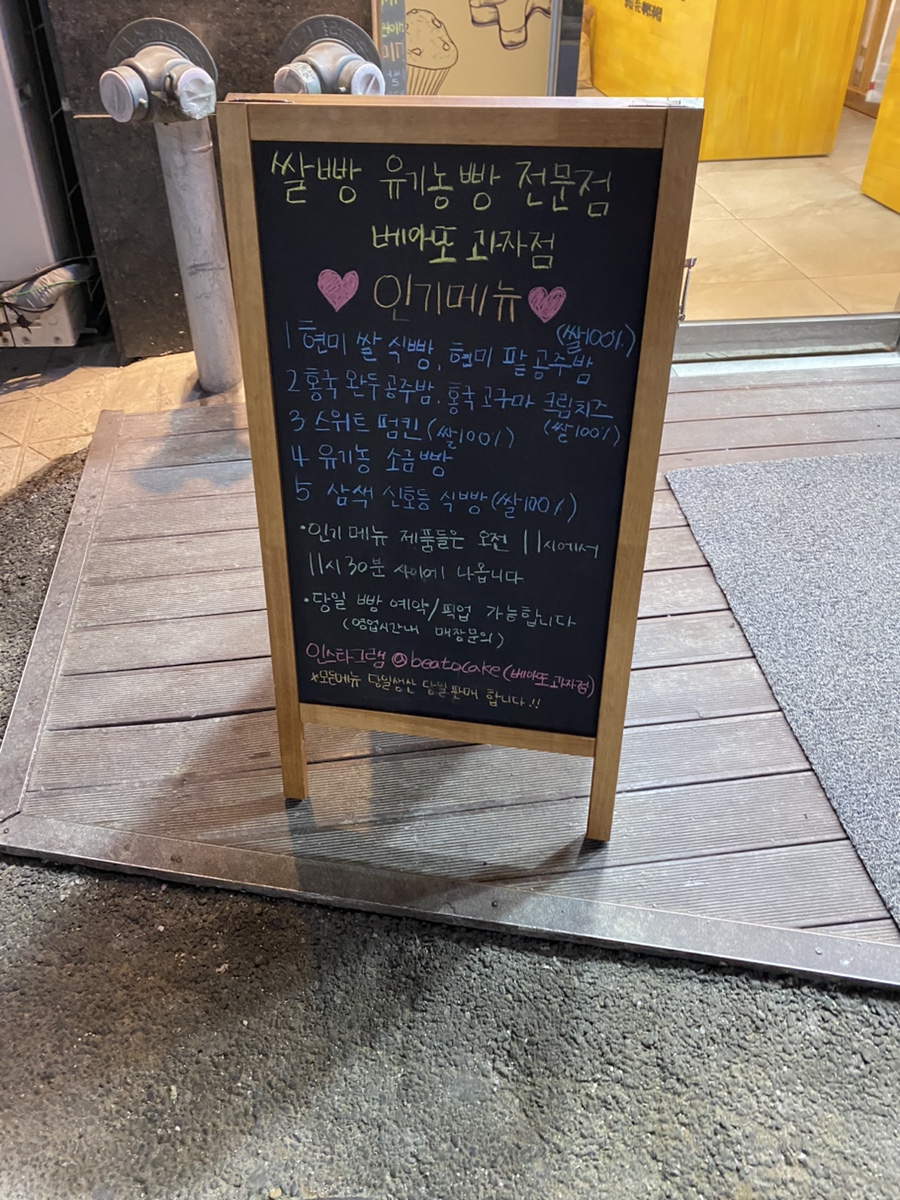 쌀빵 유기농빵 전문점
베아또 과자점
인기메뉴
(쌀100%)
1 현미 쌀 식빵, 현미 팥공주밤
2 홍국 완두공주밤. 홍국고구마 크림치즈
3 스위트 펌킨(쌀100%) (쌀100%)
4 유기농 소금빵
5 삼색 신호등 식빵(쌀100%)
·인기메뉴 제품들은 오전 11시에서
11시30분 사이에 나옵니다
·당일 빵 예약/픽업 가능합니다
(영업시간내 매장문의)
인스타그램 @beatocake(베아또과자점)
*모든메뉴 당일생산 당일판매 합니다!!